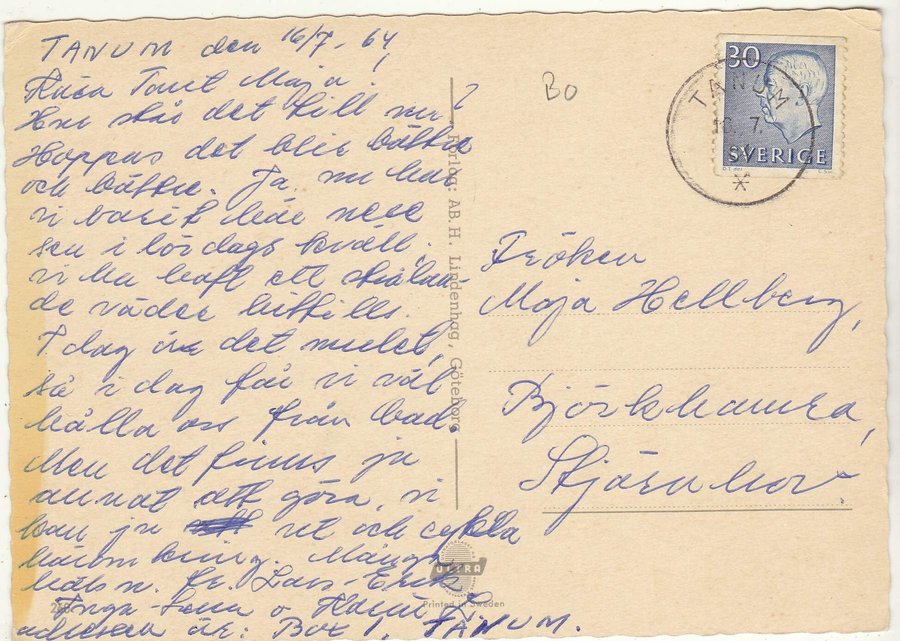 TANUM den 16/7-64
Kära Tant Maja!
Hur står det till nu?
Hoppas det blir bättre
och bättre. Ja, nu har
vi varit här nere
sen i lördags kväll,
vi har haft ett strålan-
de väder hittills.
I dag är det mulet,
så i dag får vi väl
hålla oss från bad.
Men det finns ju
annat att göra, vi
kan ju ut och cykla
härom kring. Många
hälsn. fr. Lars-Erik
Inga-Lena o
adressen är: Box 1, TANUM.
Förlag: AB. H. Lindenhag, Göteborg
ULTRA
Printed in Sweden
BO
30
SVERIGE
TANUM
16. 7.
Fröken
Maja Hellberg,
Björkhamra,
Stjärnhov.